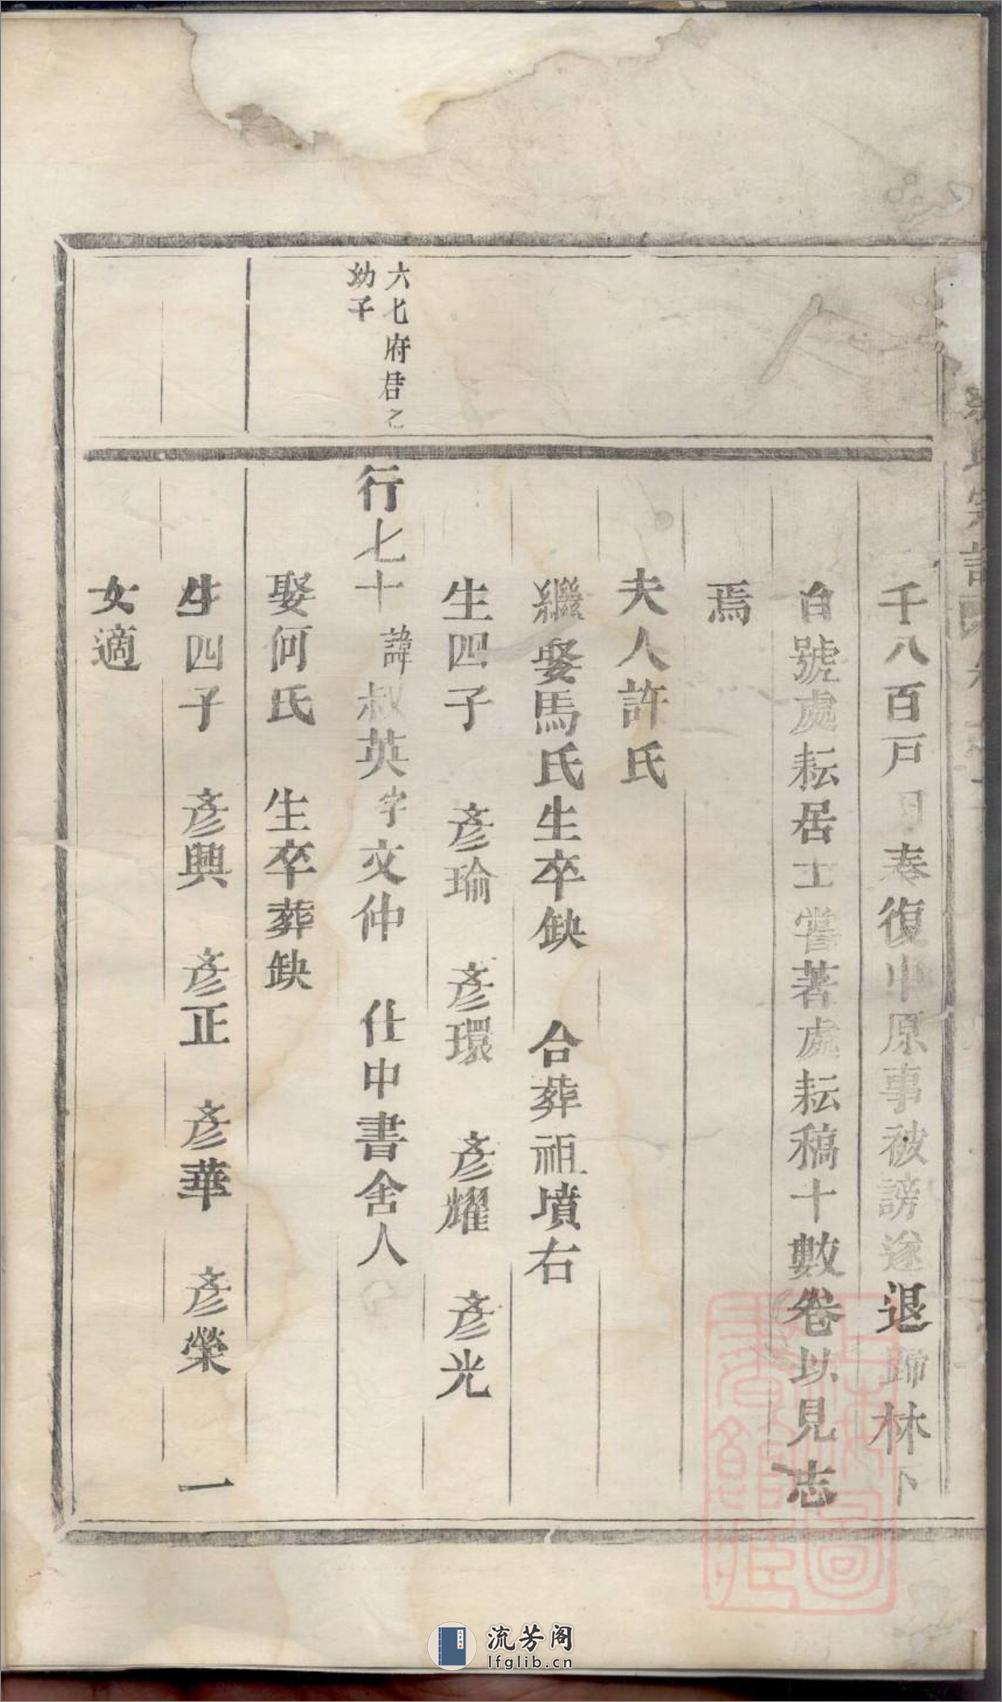 千八百戸日奏復中原事被謗遂退歸林下
自號處耘居士嘗著處耘稿十數卷以見志
焉
夫人許氏
繼娶馬氏生卒缺　合葬祖墳右
生四子　彥瑜　彥環　彥耀　彥光
六七府君之
幼子
行七十　諱叔英字文仲　仕中書舍人
娶何氏　生卒葬缺
生四子　彥興　彥正　彥華　彥榮　一
女適
流芳阁
lfglib.cn